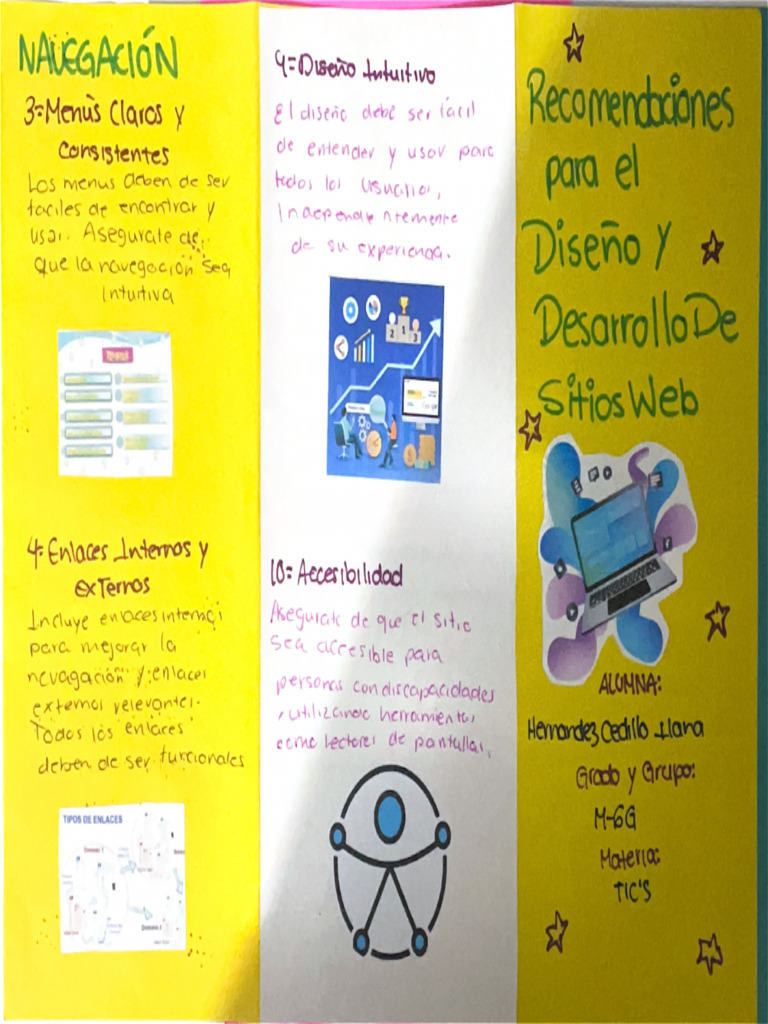 NAVEGACIÓN
3= Menús Claros y
Consistentes
Los menus deben de ser
faciles de encontrar y
usar. Asegurate de
que la navegación sea
Intuitiva
4= Enlaces Internos y
exTernos
Incluye enlaces internos
para mejorar la
nevagación y enlaces
externos relevantes.
Todos los enlaces
deben de ser funcionales
TIPOS DE ENLACES
9= Diseño Intuitivo
El diseño debe ser fácil
de entender y usar para
todos los usuarios,
Independientemente
de su experiencia.
10= Accesibilidad
Asegurate de que el sitio
sea accesible para
personas con discapacidades
, utilizando herramientas
como lectores de pantallas.
Recomendaciones
para el
Diseño y
Desarrollo De
Sitios Web
ALUMNA:
Hernandez Cedillo Iliana
Grado y Grupo:
M-6G
Materia:
TIC'S